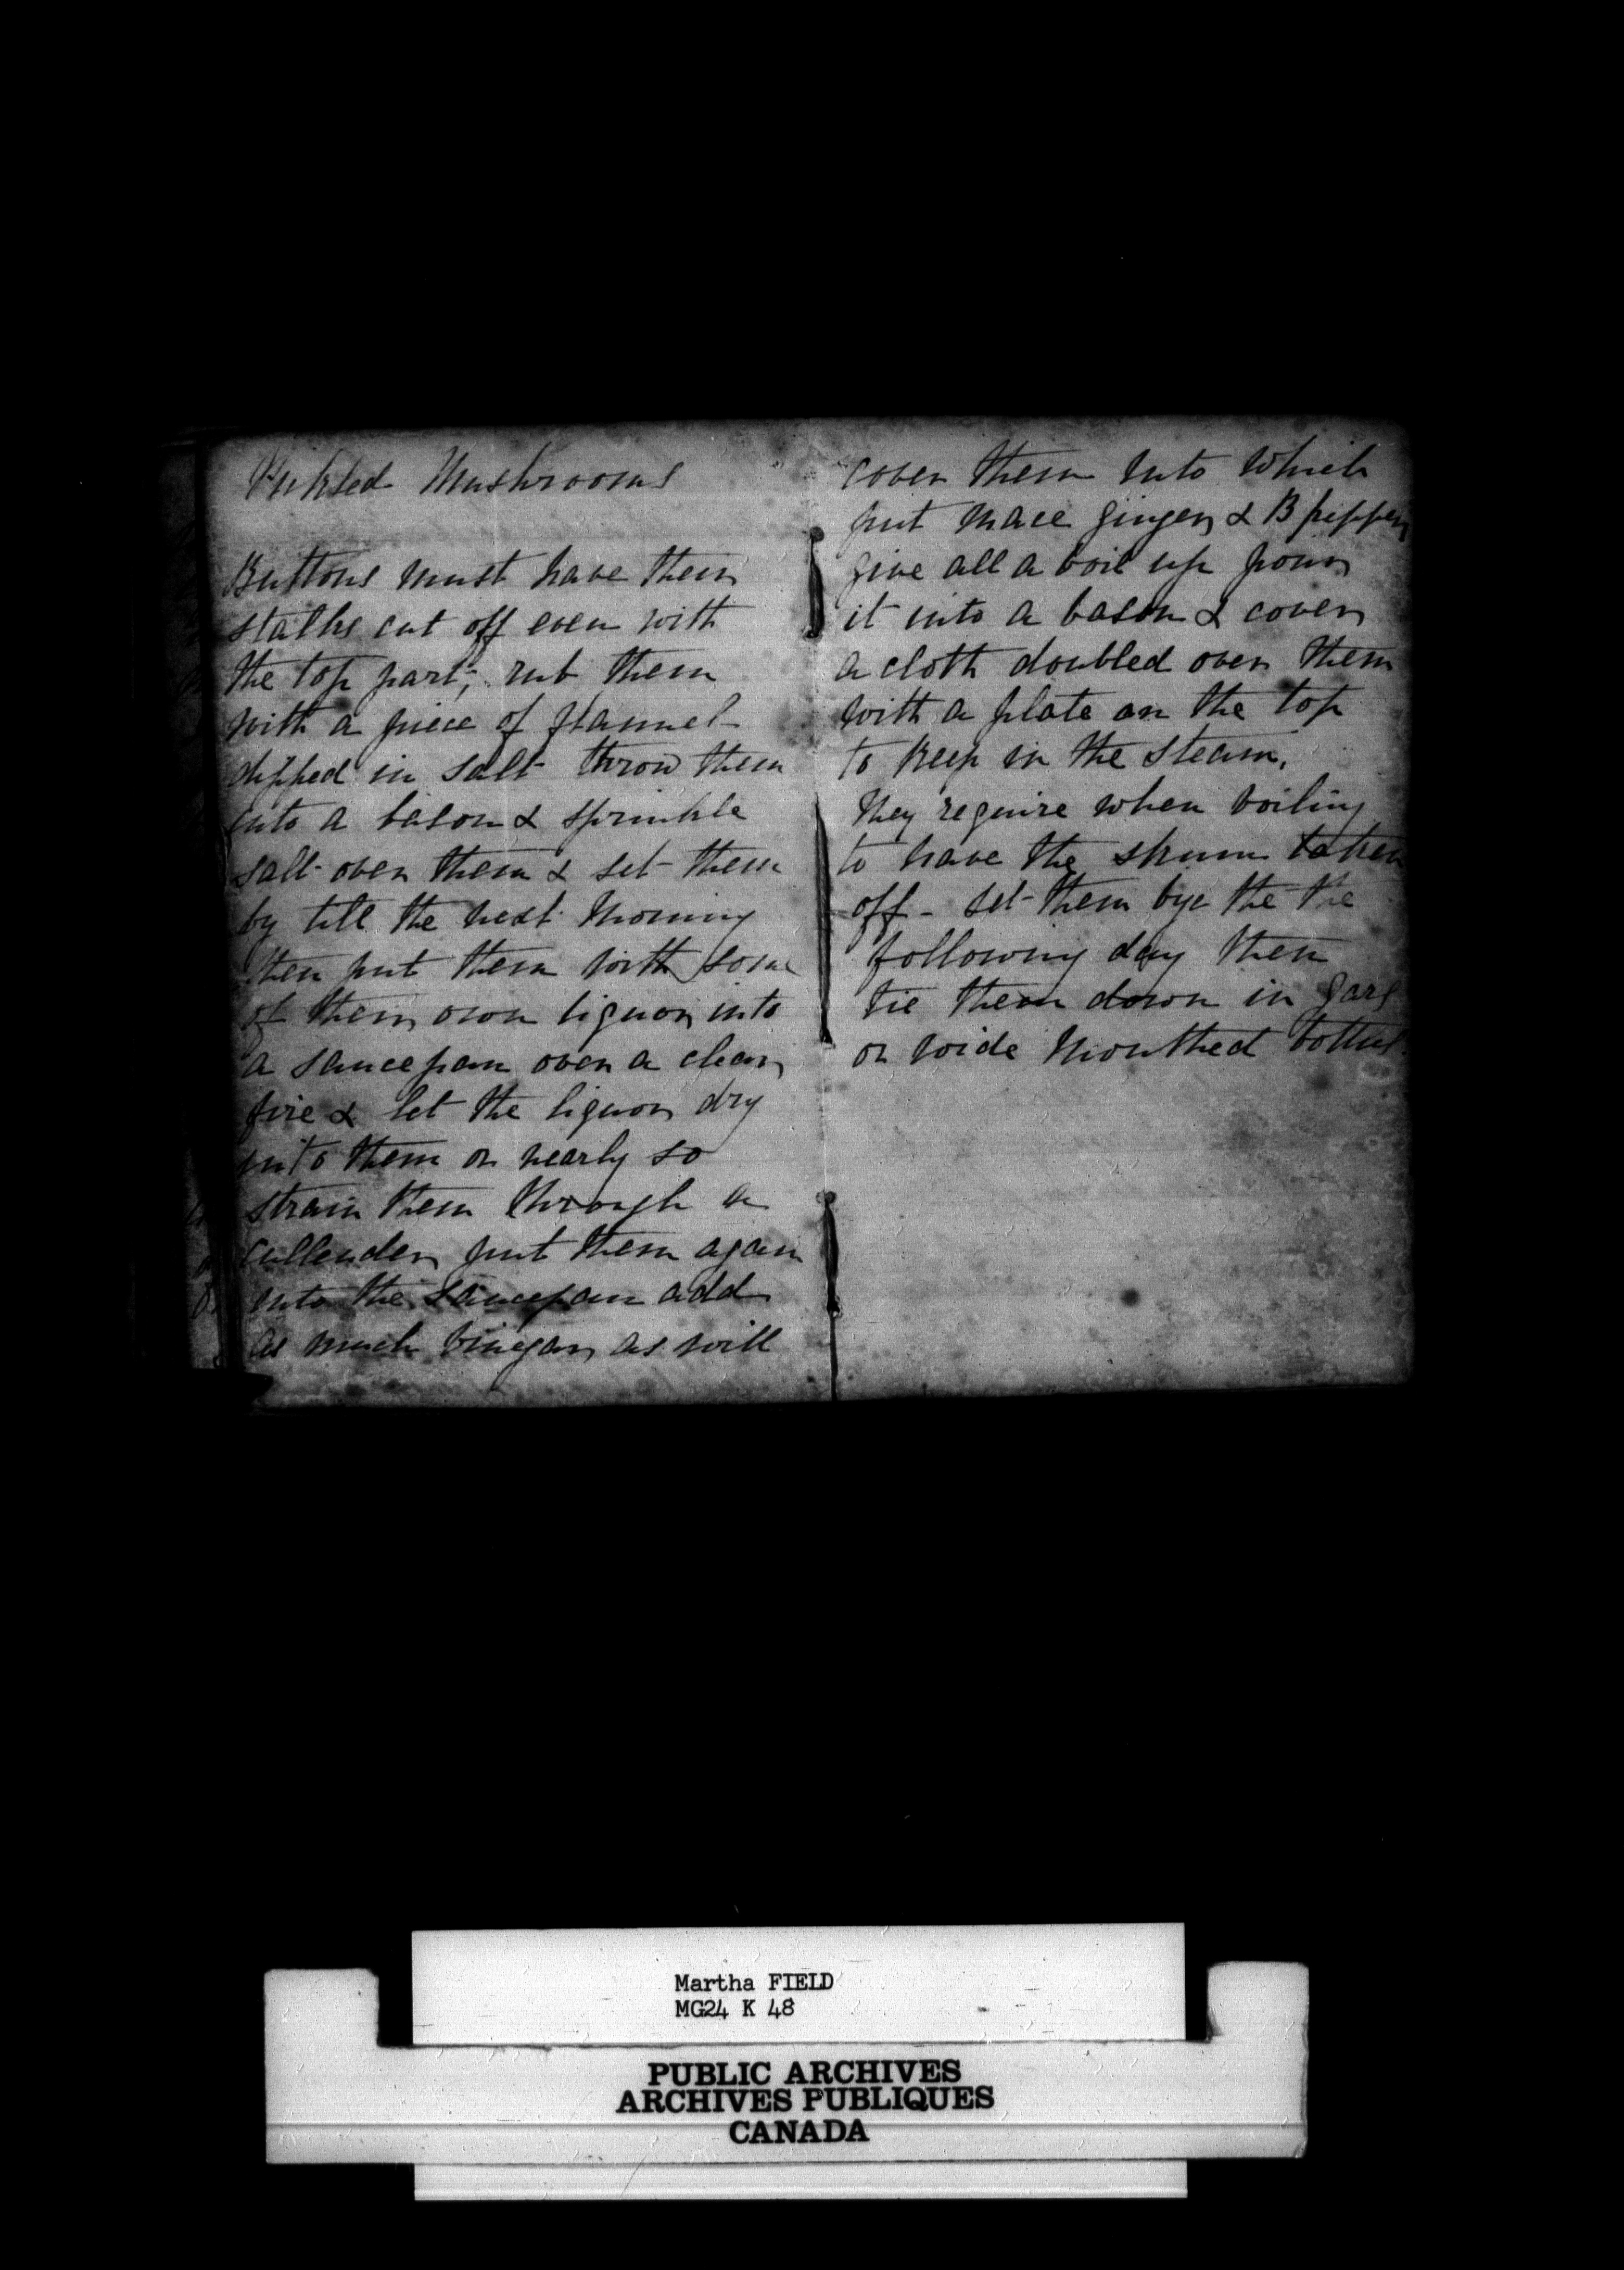 Pickled Mushrooms
Buttons must have their
stalks cut off even with
the top part; rub them
with a piece of flannel
dipped in salt throw them
into a bason & sprinkle
salt over them & set them
by till the next morning
then put them with some
of their own liquor into
a saucepan over a clear
fire & let the liquor dry
into them or nearly so
strain them through a
cullender put them again
into the saucepan add
as much vinegar as will
cover them into which
put mace ginger & B pepper
give all a boil up pour
it into a bason & cover
a cloth doubled over them
with a plate on the top
to keep in the steam.
They require when boiling
to have the skum taken
off - set them bye the the
following day then
tie them down in jars
or wide mouthed bottles
Martha FIELD
MG24 K 48
PUBLIC ARCHIVES
ARCHIVES PUBLIQUES
CANADA